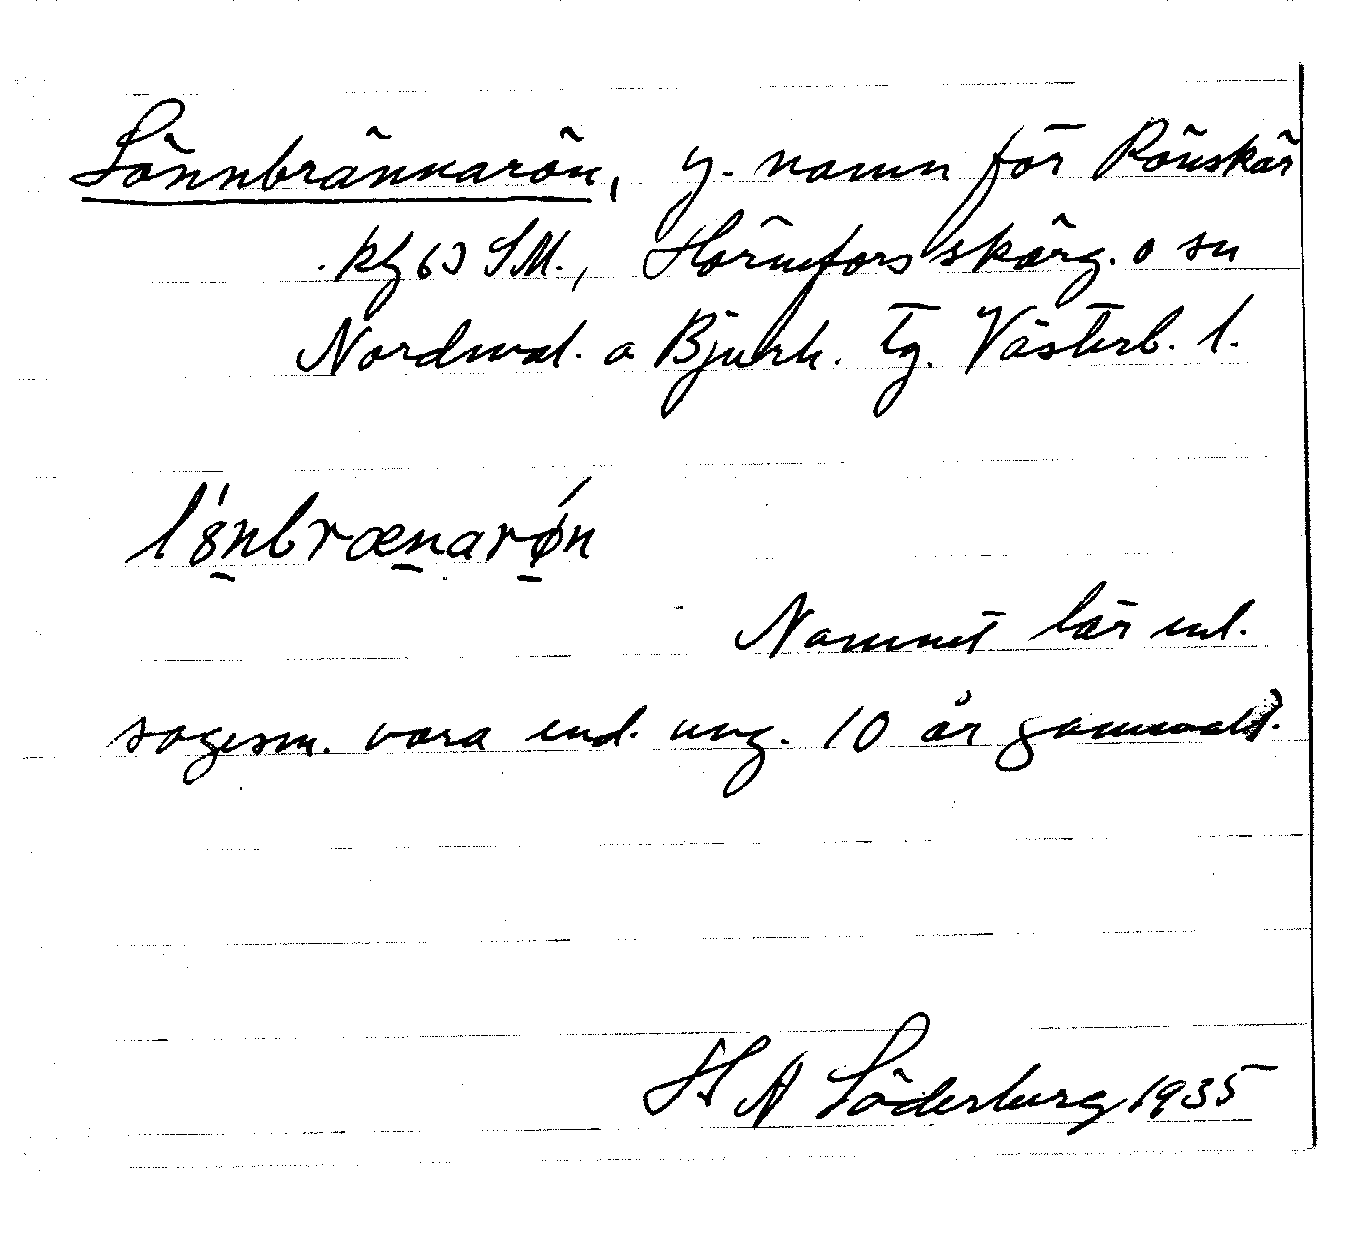 Lönnbrännarön, y. namn för Rönskär
kfg 63 SM., Hörnefors skärg. o sn
Nordmal. o Bjurh. tg. Västerb. l.
lönbrænarøn
Namnet lär enl.
sagesm. vara end. ung. 10 år gammalt.
H A Söderberg 1935